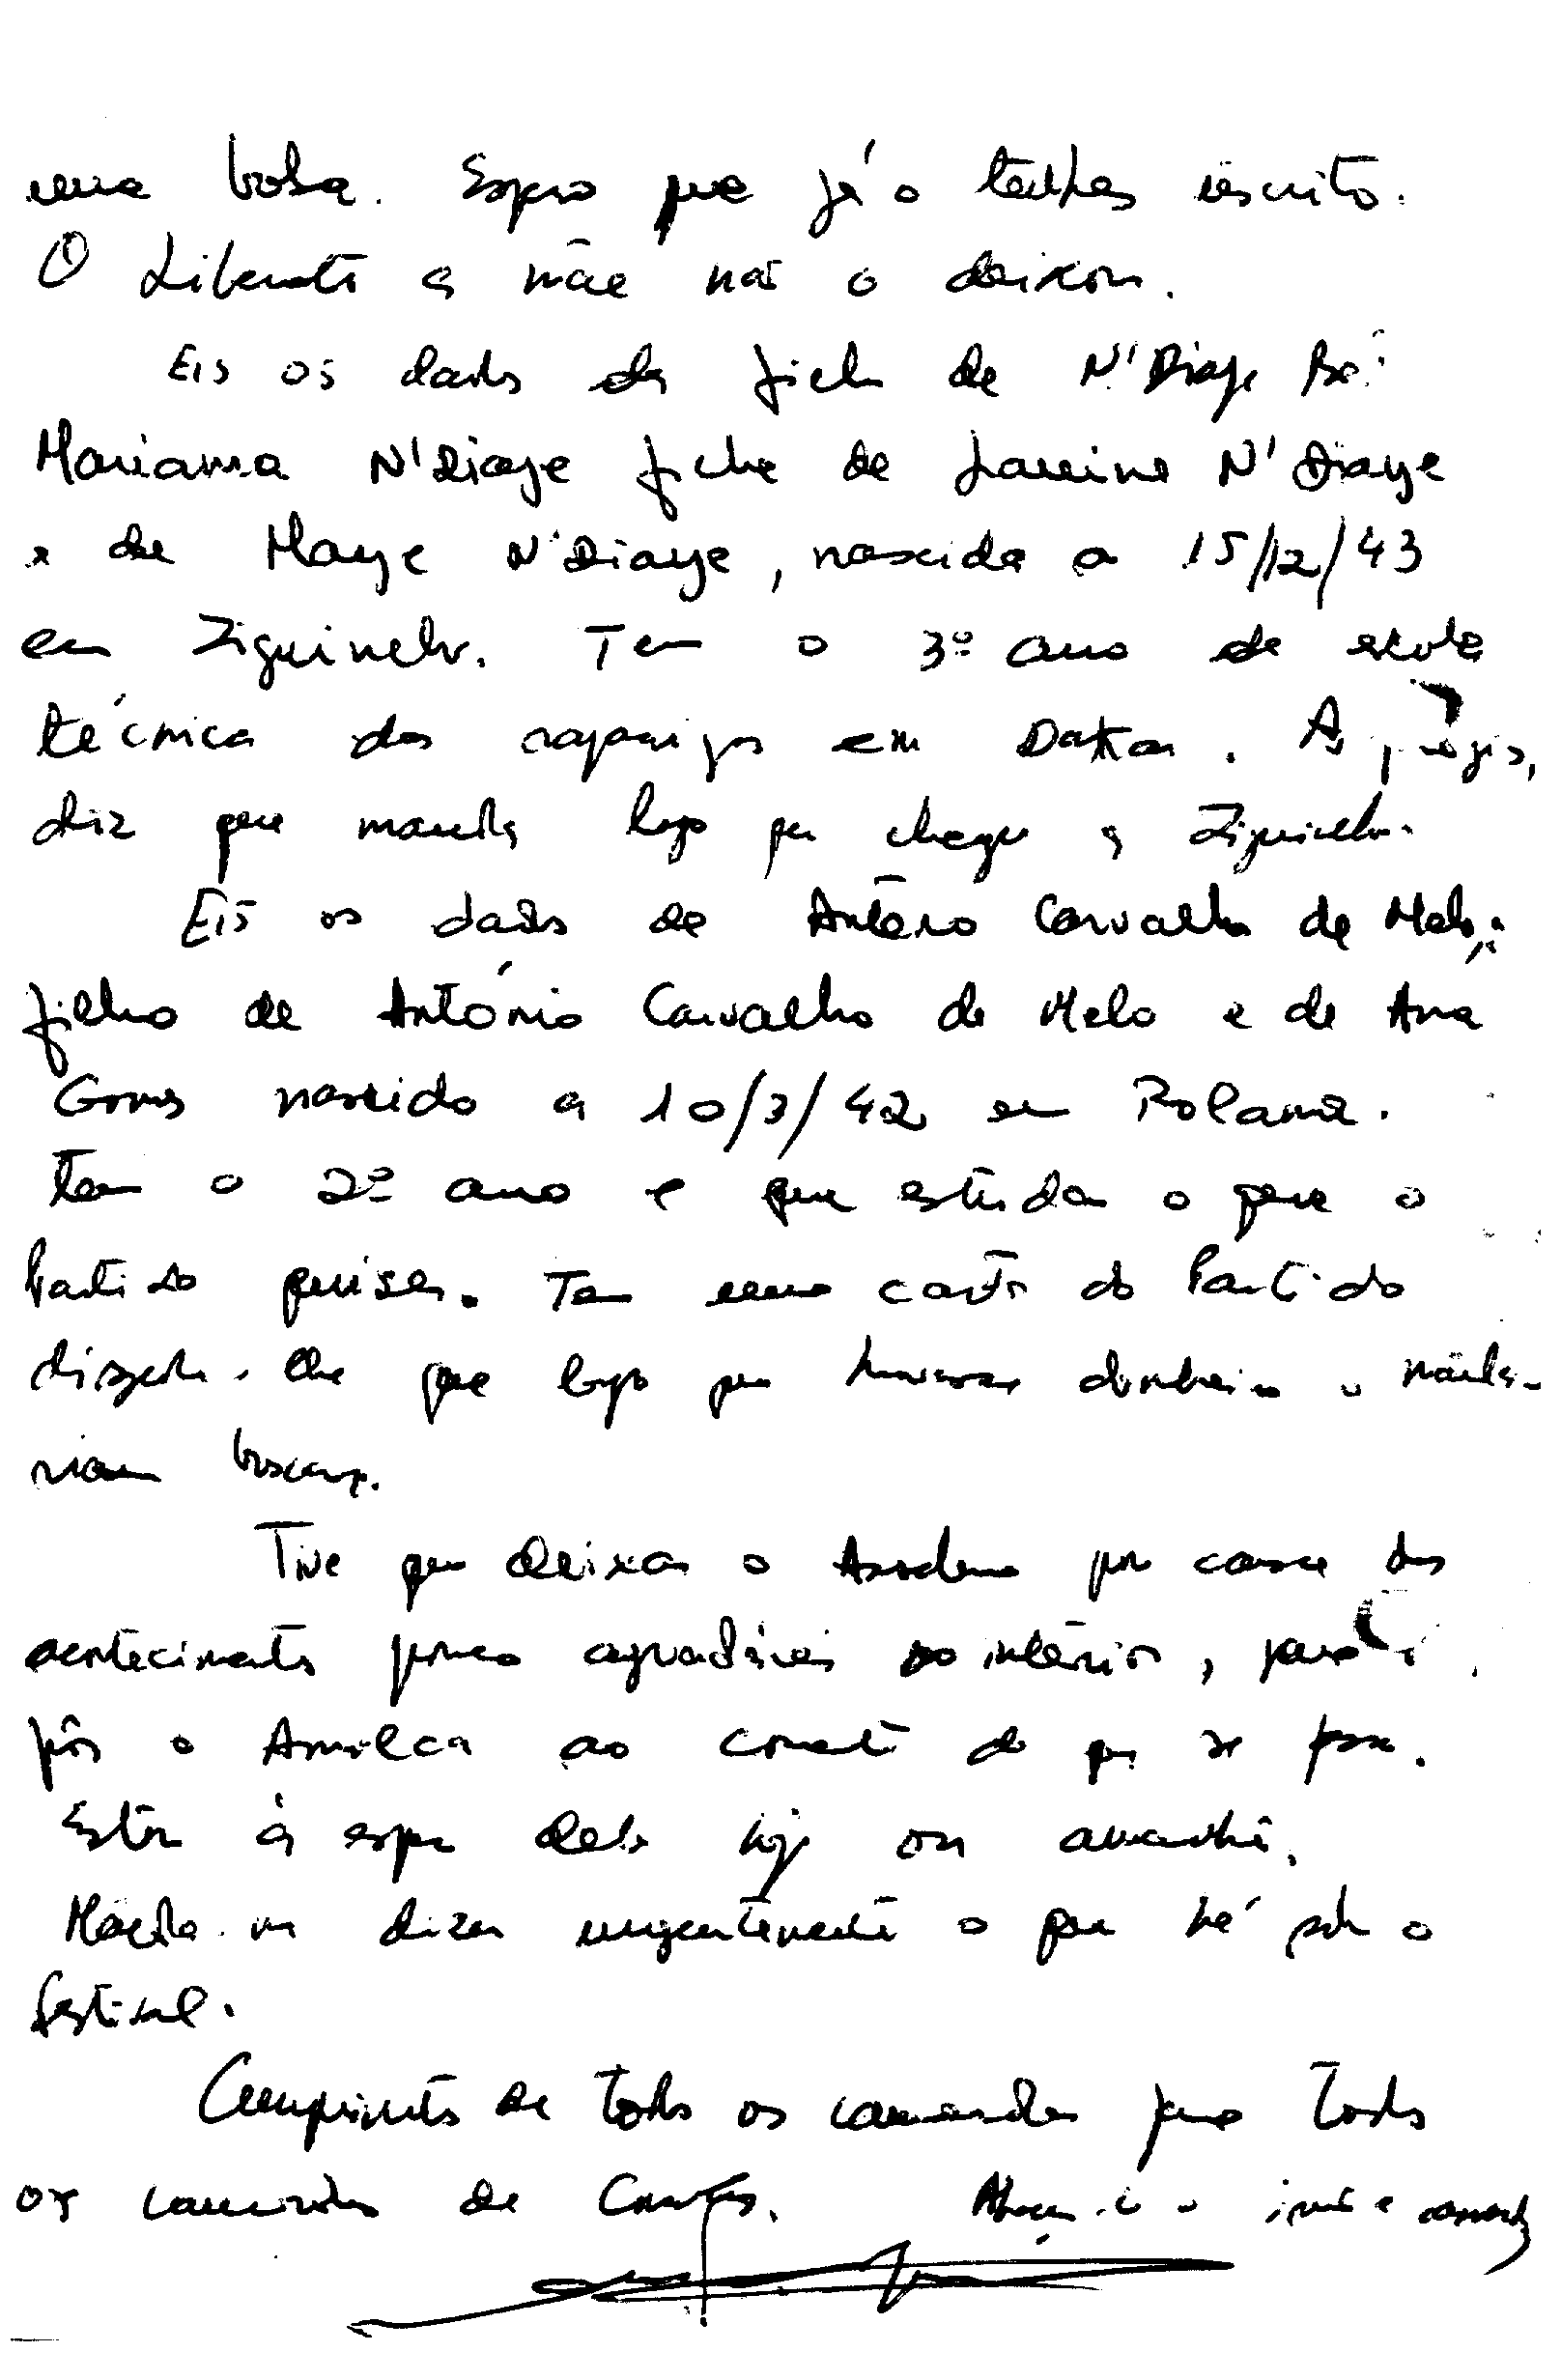 uma bolsa. Espero que já o tenhas escrito.
O Liberato a mãe não o deixou.
Eis os dados da ficha de N'Diaye Bá:
Mariama N'Diaye filha de Lamine N'Diaye
e de Maye N'Diaye, nascida a 15/12/43
em Ziguinchor. Tem o 3º ano de escola
técnica das raparigas em Dakar.
diz que manda logo que chegar a Ziguinchor.
Eis os dados de Antéro Carvalho de Melo:
filho de António Carvalho de Melo e de Ana
Gomes nascido a 10/3/42 em Bolama.
Tem o 2º ano e quer estudar o que o
Partido quiser. Tem uma carta do Partido
dizendo-lhe que logo que houvesse dinheiro o manda-
riam buscar.
Tive que deixar o por causa dos
acontecimentos pouco agradáveis no interior, para
pôr o Amílcar ao corrente do que se passa.
Estou à espera dele hoje ou amanhã.
Manda-me dizer urgentemente o que há sobre o
festival.
Cumprimentos de todos os camaradas para todos
os camaradas de Conakry. Abraça-te o irmão e camarada